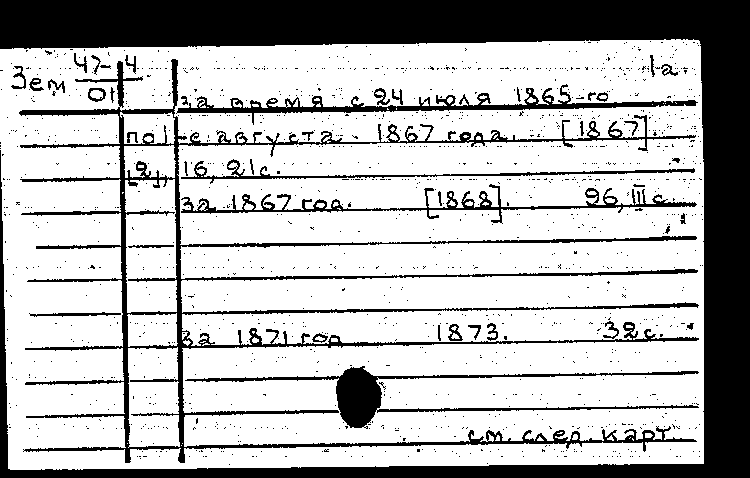 1а.
Зем 47-4
01
за время с 24 июля 1865-го
по 1-е августа. 1867 года. [1867].
[2], 16, 21с.
за 1867 год. [1868]. 96, III с.
за 1871 год 1873. 32с.
см. след. карт.